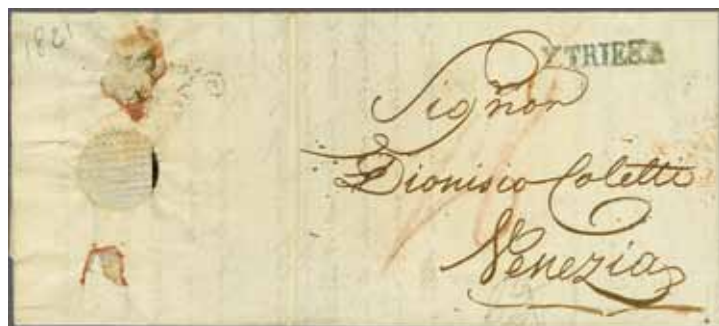 1821
V.TRIESA
Signor
Dionisio Coletti
Venezia